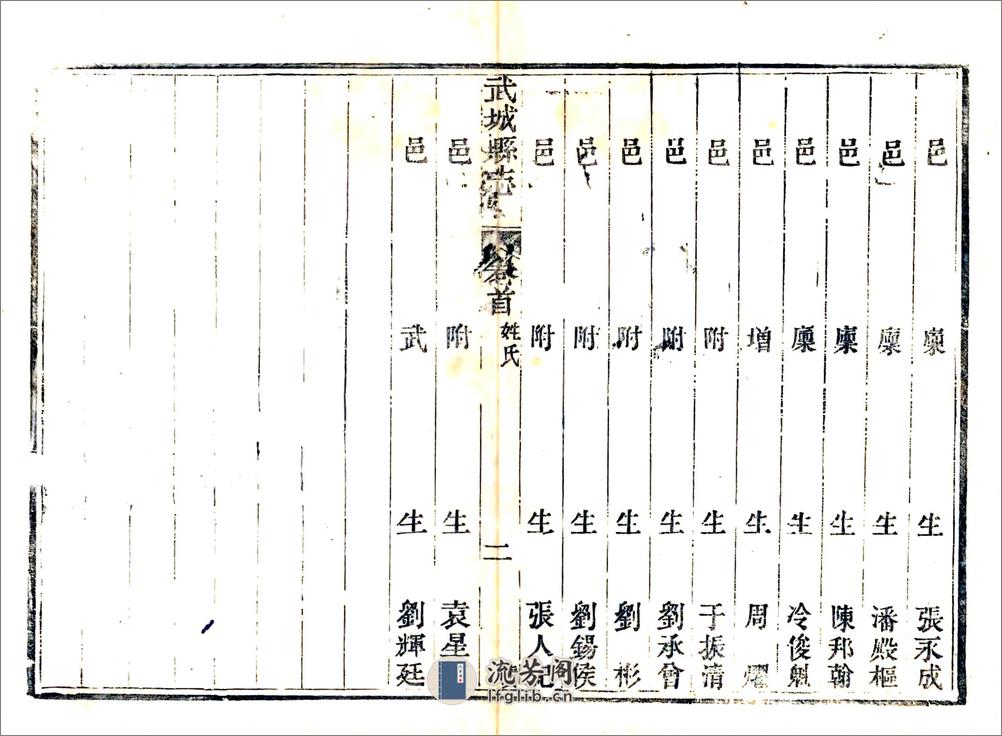 邑廩生張永成
邑廩生潘殿樞
邑廩生陳邦翰
邑廩生冷俊魁
邑增生周燿
邑附生于振清
邑附生劉承曾
邑附生劉彬
邑附生劉錫侯
邑附生張人紀
武城縣志 卷首 姓氏 二
邑附生袁星
邑武生劉輝廷
流芳阁
lfglib.cn